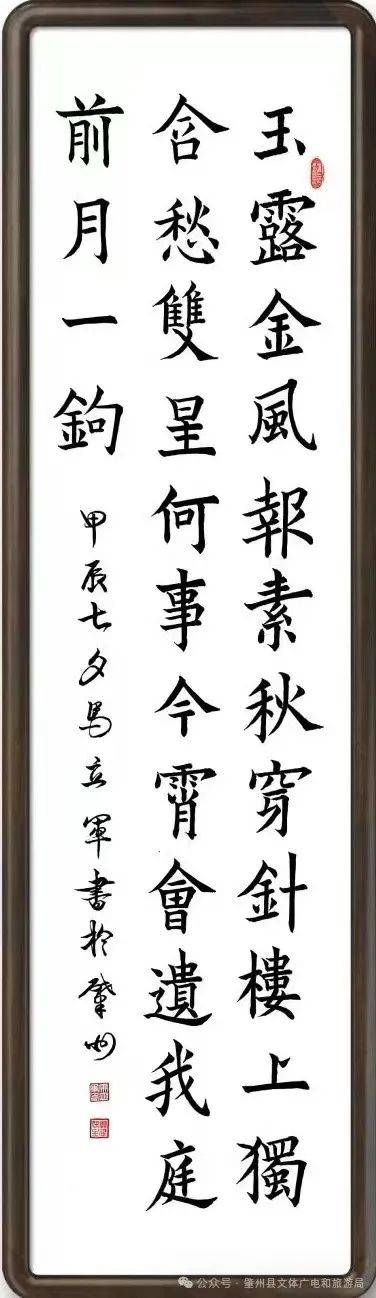 玉露金風報素秋穿針樓上獨
含愁雙星何事今霄會遺我庭
前月一鉤
甲辰七夕馬立軍書於肇州
公众号·肇州县文体广电和旅游局